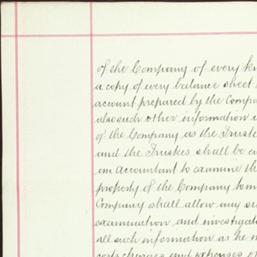 of the Company of every
a copy of every balance sheet
account prepared by the Compa
also such other information
of the Company as the Truste
and the Trustees shall be
an Accountant to examine th
property of the Company
Company shall allow any
examination and investigat
all such information as he
costs charges and expenses